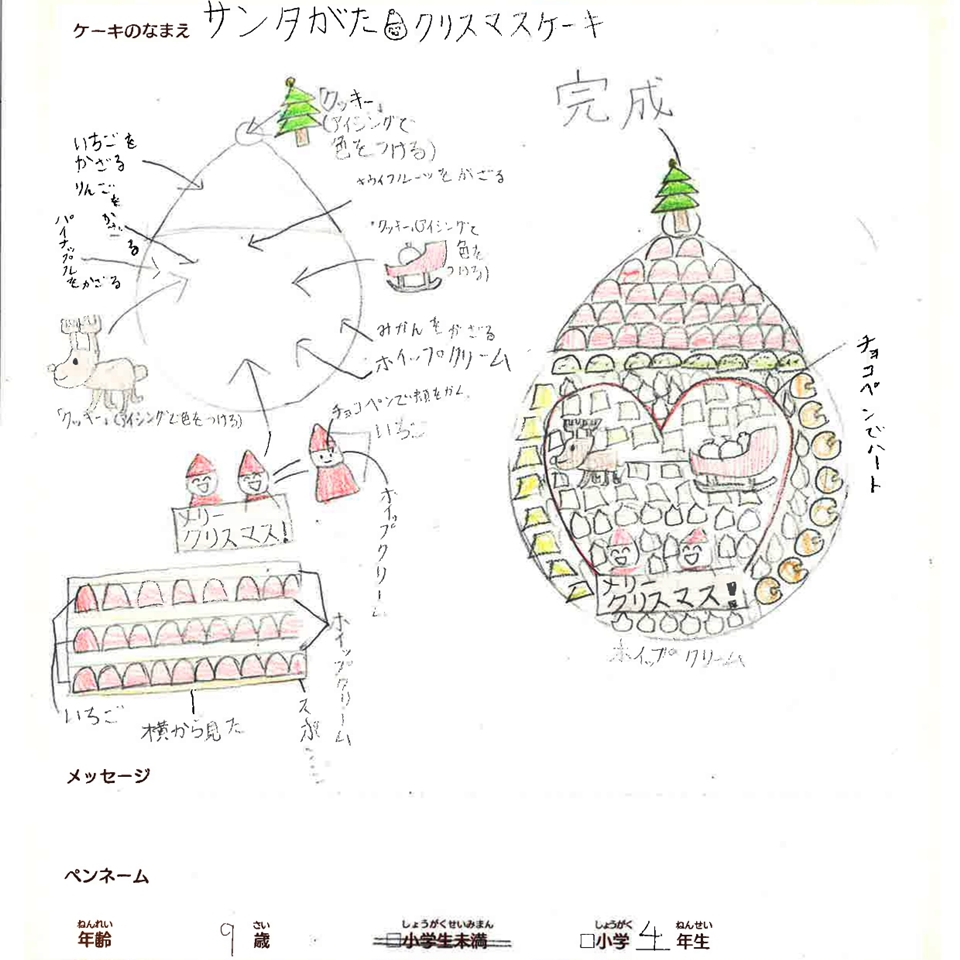 ケーキのなまえ サンタがたクリスマスケーキ
「クッキー」
(アイシングで
色をつける)
完成
いちごを
かざる
りんごをかざる
パイナップルをかざる
キウイフルーツをかざる
「クッキー」(アイシングで
色を
つける)
みかんをかざる
ホイップクリーム
「クッキー」(アイシングで色をつける)
チョコペンで顔をかく
いちご
ホイップクリーム
メリー
クリスマス!
いちご
横から見た
ホイップクリーム
チョコペンでハート
メリー
クリスマス!
ホイップクリーム
メッセージ
ペンネーム
ねんれい
年齢 9 さい
歳
しょうがくせいみまん
□小学生未満
しょうがく ねんせい
□小学 4 年生